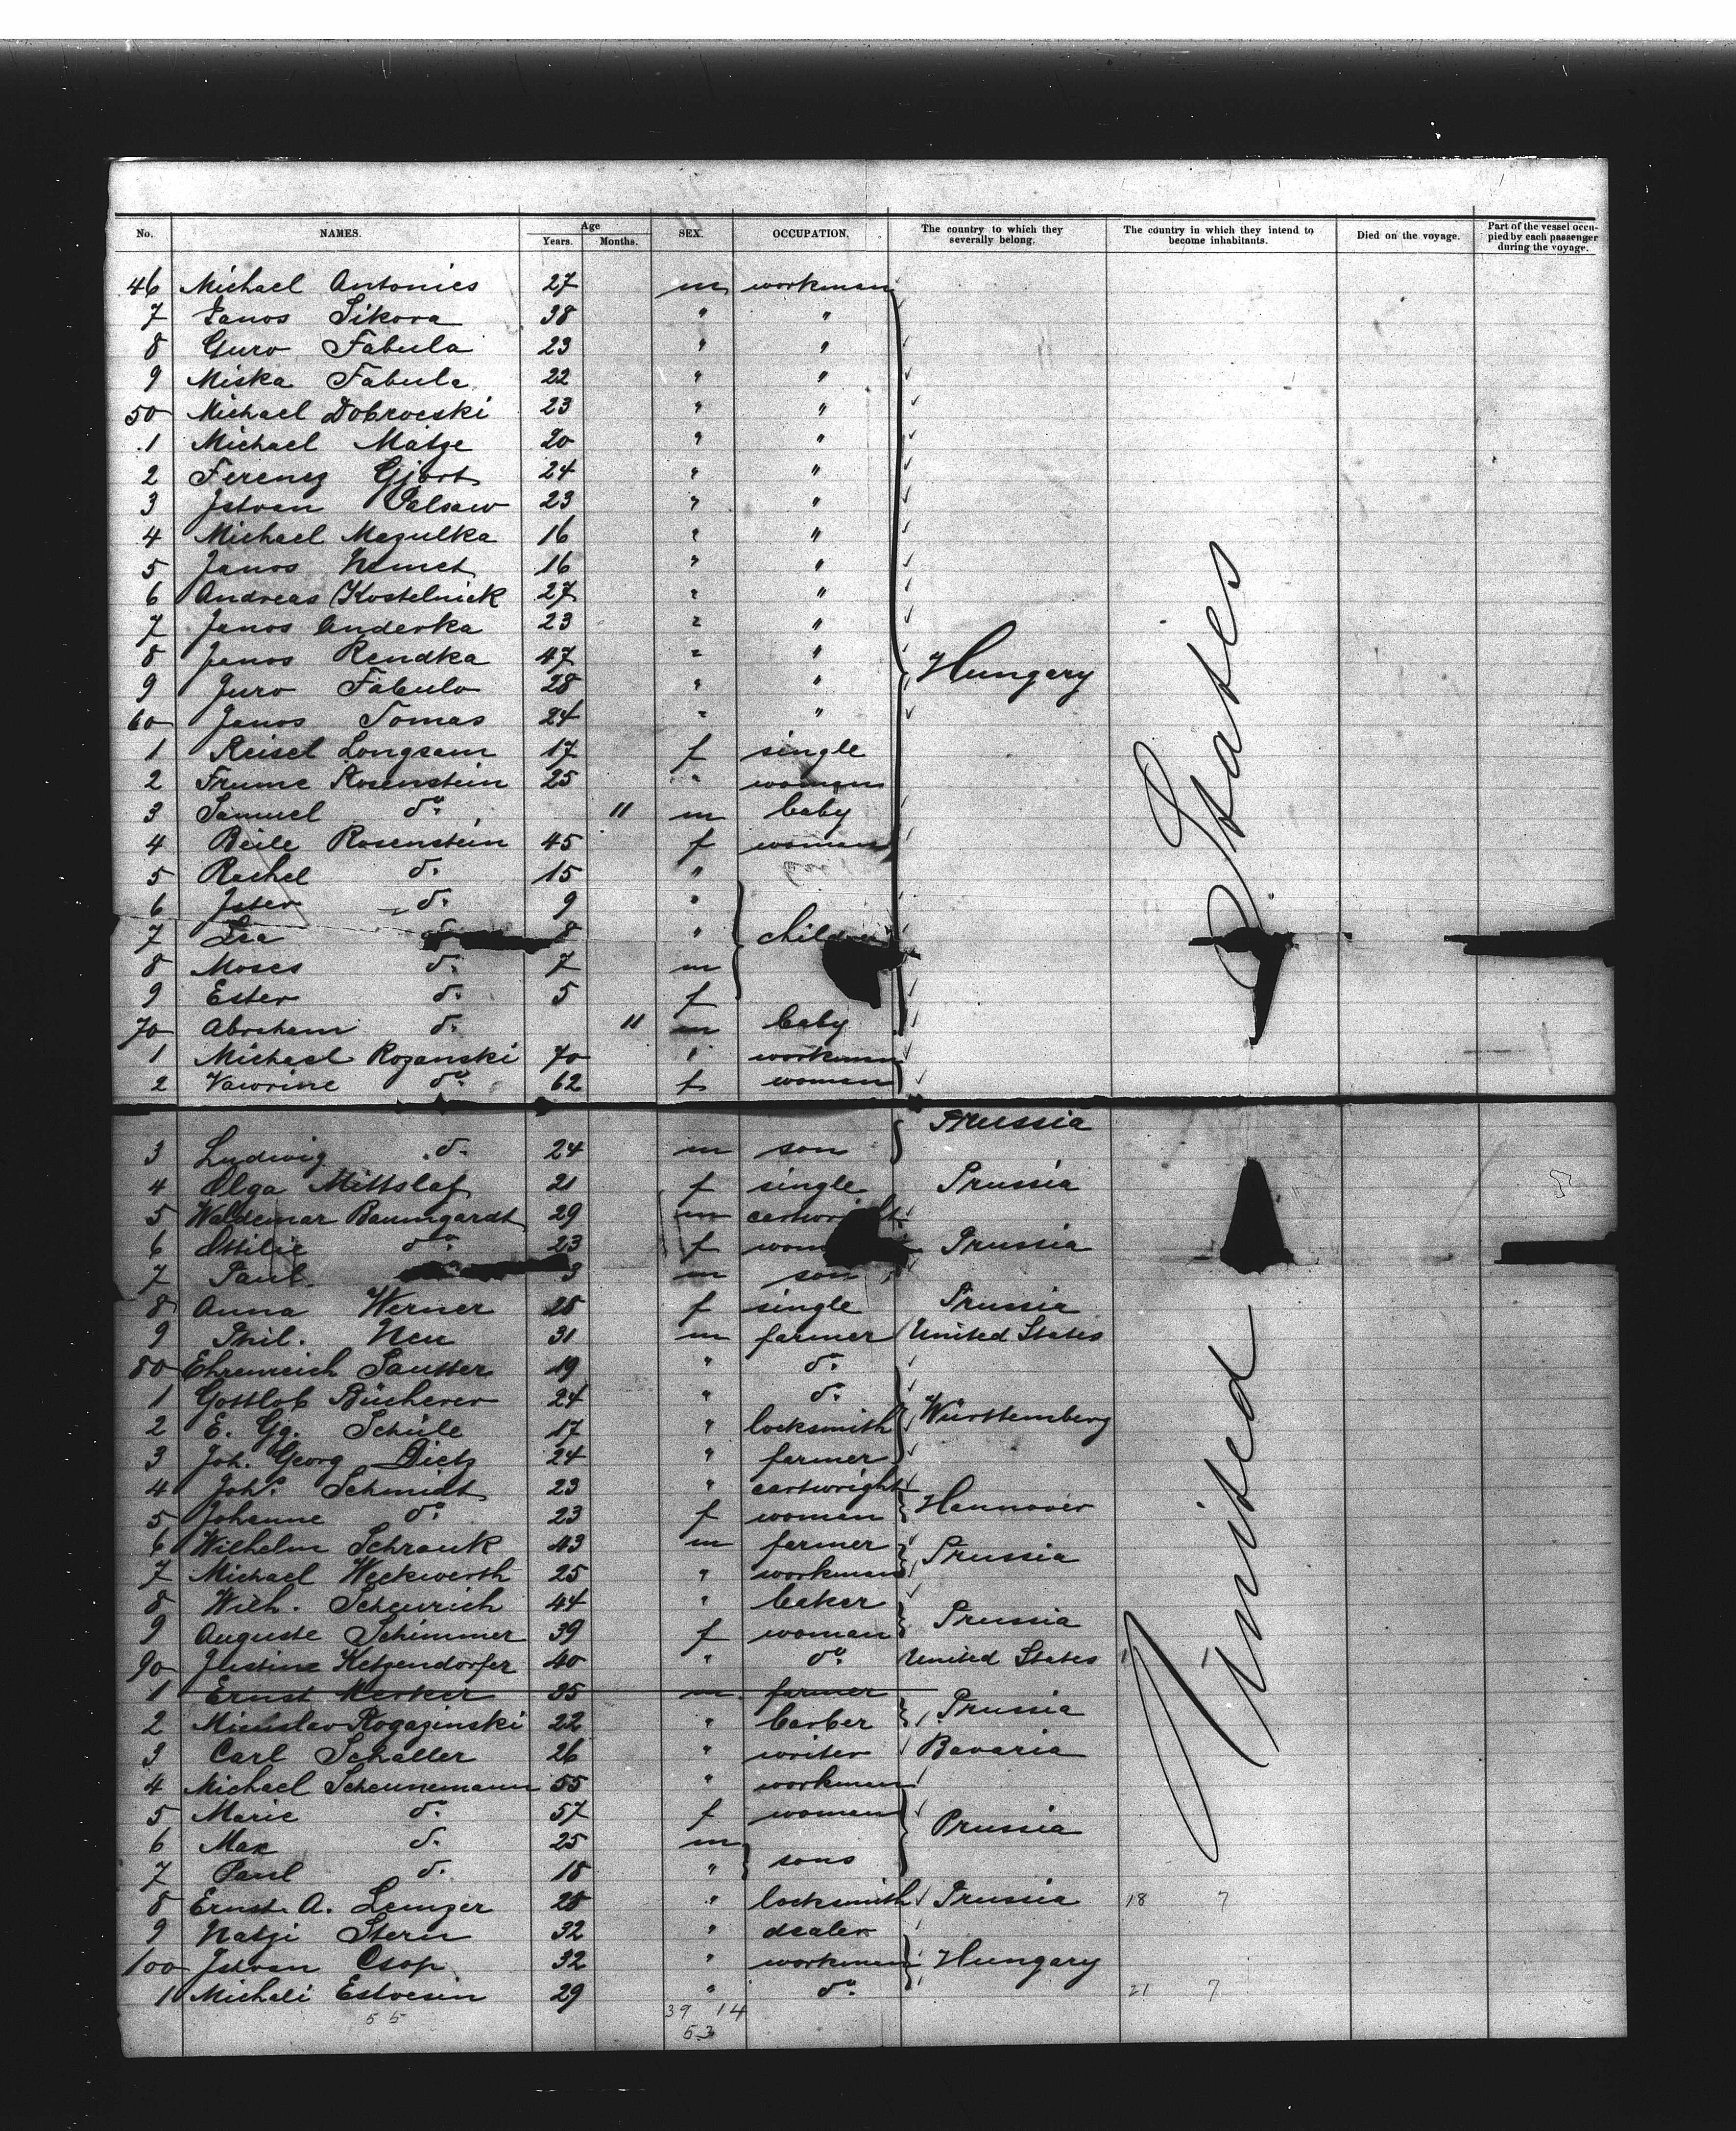 No. NAMES. Age Years. Months. SEX. OCCUPATION. The country to which they severally belong. The country in which they intend to become inhabitants. Died on the voyage. Part of the vessel occupied by each passenger during the voyage.
46 Michael Antonics 27 m workman
7 Janos Sikora 38 " "
8 Guro Fabula 23 " "
9 Miska Fabula 22 " "
50 Michael Dobrocski 23 " "
1 Michael Matze 20 " "
2 Ferencz Gjort 24 " "
3 Istvan Palsaw 23 " "
4 Michael Mazulka 16 " "
5 Janos Nemet 16 " "
6 Andreas Kostelnick 27 " "
7 Janos Anderka 23 " "
8 Janos Rendka 47 " " Hungary
9 Juro Fabulo 28 " "
60 Janos Tomas 24 " "
1 Reisel Longsam 17 f single
2 Frume Rosenstein 25 " woman
3 Samuel do 11 m baby
4 Beile Rosenstein 45 f woman
5 Rachel do 15 "
6 Ister do 9 "
7 Lea do 8 "
8 Moses do 7 m
9 Ester do 5 f
70 Abraham do 11 m baby
1 Michael Rozanski 70 " workman
2 Vawrine do 62 f woman
Prussia
3 Ludwig do 24 m son
4 Olga Mittslaf 21 f single Prussia
5 Waldemar Baumgardt 29 m
6 Ottilie do 23 f Prussia
7 Paul 3 m son
8 Anna Werner 28 f single Prussia
9 Phil. Neu 31 m farmer United States
80 Ehrenreich Sautter 19 " do
1 Gottlob Bücherer 24 " do
2 E. Gg. Schüle 17 " locksmith Württemberg
3 Joh. Georg Dietz 24 " farmer
4 Johs. Schmidt 23 " cartwright
5 Johanne do 23 f woman Hannover
6 Wilhelm Schrank 43 m farmer Prussia
7 Michael Weckwerth 25 " workman
8 Wilh. Scheurich 44 " baker Prussia
9 Auguste Schimmer 39 f woman
90 Justine Ketzendorfer 40 " do United States
1 Ernst Merker 35 m farmer
2 Mieislav Rogazinski 22 " barber Prussia
3 Carl Schaller 26 " writer Bavaria
4 Michael Scheunemann 55 " workman
5 Marie do 57 f woman Prussia
6 Max do 25 m sons
7 Paul do 18 "
8 Ernst A. Lemzer 28 " locksmith Prussia 18 7
9 Natzi Stern 32 " dealer
100 Istvan Csop 32 " workman Hungary
1 Michali Estvesin 29 " do 21 7
55 39 14
53
United States